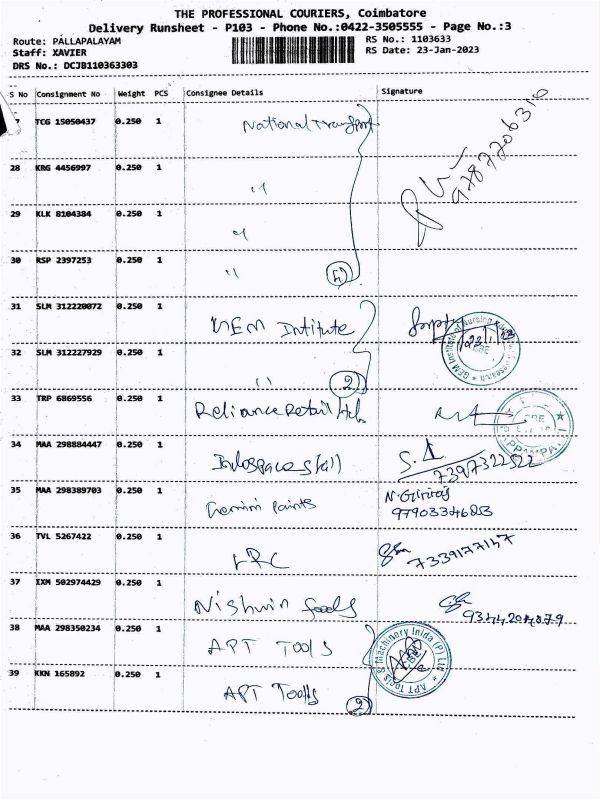 THE PROFESSIONAL COURIERS, Coimbatore
Delivery Runsheet - P103 - Phone No.:0422-3505555 - Page No.:3
Route: PALLAPALAYAM RS No.: 1103633
Staff: XAVIER RS Date: 23-Jan-2023
DRS No.: DCJB110363303
S No Consignment No Weight PCS Consignee Details Signature
7 TCG 15050437 0.250 1 National Transport
9787206316
28 KRG 4456997 0.250 1 "
29 KLK 8104384 0.250 1 "
30 RSP 2397253 0.250 1 "
31 SLM 312220072 0.250 1 GEM Intitute
GEM Institute of Nursing
32 SLM 312227929 0.250 1 " 2
33 TRP 6869556 0.250 1 Reliance Retail
34 MAA 298884447 0.250 1 S.
7397322522
35 MAA 298389703 0.250 1 Gemini Paints N. Giriraj
97903346853
36 TVL 5267422 0.250 1 LRC 7339177147
37 IXM 502974429 0.250 1 Nishwin foods 9344204879
38 MAA 298350234 0.250 1 APT TOOLS
APT Tools & Machinery Inida (P) Ltd
39 KKN 165892 0.250 1 APT Tools 2